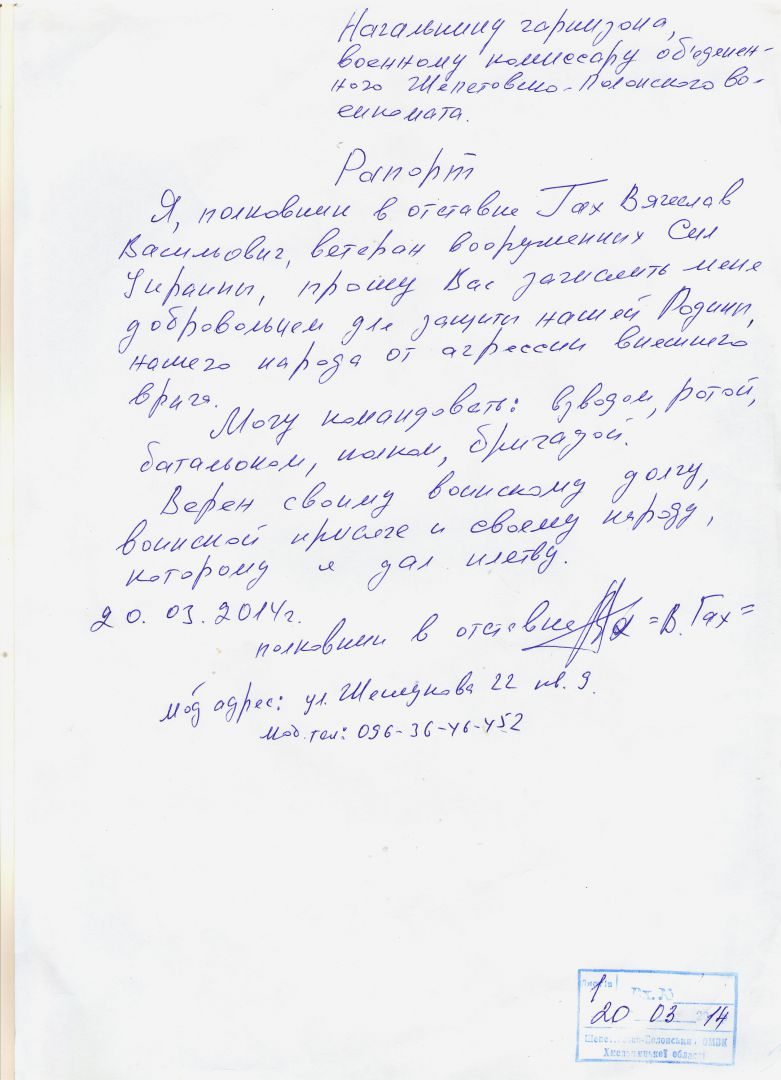 Начальнику гарнизона,
военному комиссару об'единен-
ного Шепетовско-Полонского во-
енкомата.
Рапорт
Я, полковник в отставке Гах Вячеслав
Васильович, ветеран вооруженных Сил
Украины, прошу Вас зачислить меня
добровольцем для защиты нашей Родины,
нашего народа от агрессии внешнего
врага.
Могу командовать: взводом, ротой,
батальоном, полком, бригадой.
Верен своему воинскому долгу,
воинской присяге и своему народу,
которому я дал клятву.
20.03.2014г.
полковник в отставке =В.Гах=
Мой адрес: ул. 22 кв. 9.
Моб.тел: 096-36-46-452
1 Вх.№
20 03 2014
Полонський ОМВК
Хмельницької області